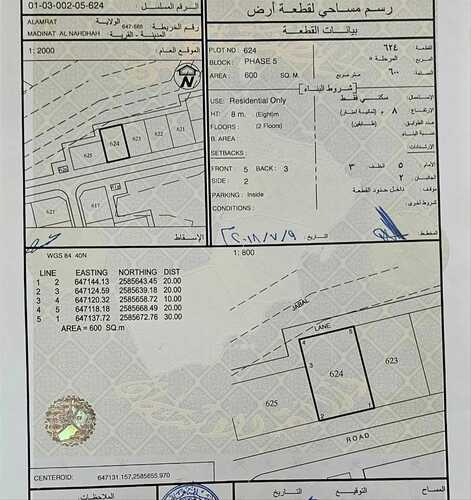 01-03-002-05-624 الرقم المسلسل
رسم مساحي لقطعة أرض
ALAMRAT 647-685 الولاية
رقم الخريطة
MADINAT AL NAHDHAH المدينة - القرية
بيانات القطعة
1: 2000 الموقع العام
N
624
625
621
617
PLOT NO : 624 ٦٢٤ القطعة
BLOCK : PHASE 5 المرحلة ٥ المربع
AREA : 600 SQ. M متر مربع ٦٠٠ المساحة
شروط البناء
USE: Residential Only سكني فقط الإستعمال
HT: 8 m. (Eightm (ثمانية أمتار) ٨ الإرتفاع
FLOORS (2 Floors) (طابقين) عدد الطوابق
B. AREA مساحة البناء
SETBACKS الإرتدادات
FRONT : 5 BACK : 3 ٣ الخلف ٥ الأمام
SIDE : 2 ٢ الجانبين
PARKING : Inside داخل حدود القطعة موقف
CONDITIONS : شروط أخرى
التاريخ : المخطط
الإسقاط
WGS 84 40N
1: 800
LINE EASTING NORTHING DIST
1 2 647144.13 2585643.45 20.00
2 3 647124.59 2585639.18 20.00
3 4 647120.32 2585658.72 10.00
4 5 647118.18 2585668.49 20.00
5 1 647137.72 2585672.76 30.00
AREA = 600 SQ.m
JABAL
LANE
4
5
3
623
624
625
2
1
ROAD
CENTEROID: 647131.157,2585655.970
الملاحظات
التاريخ التوقيع المساح